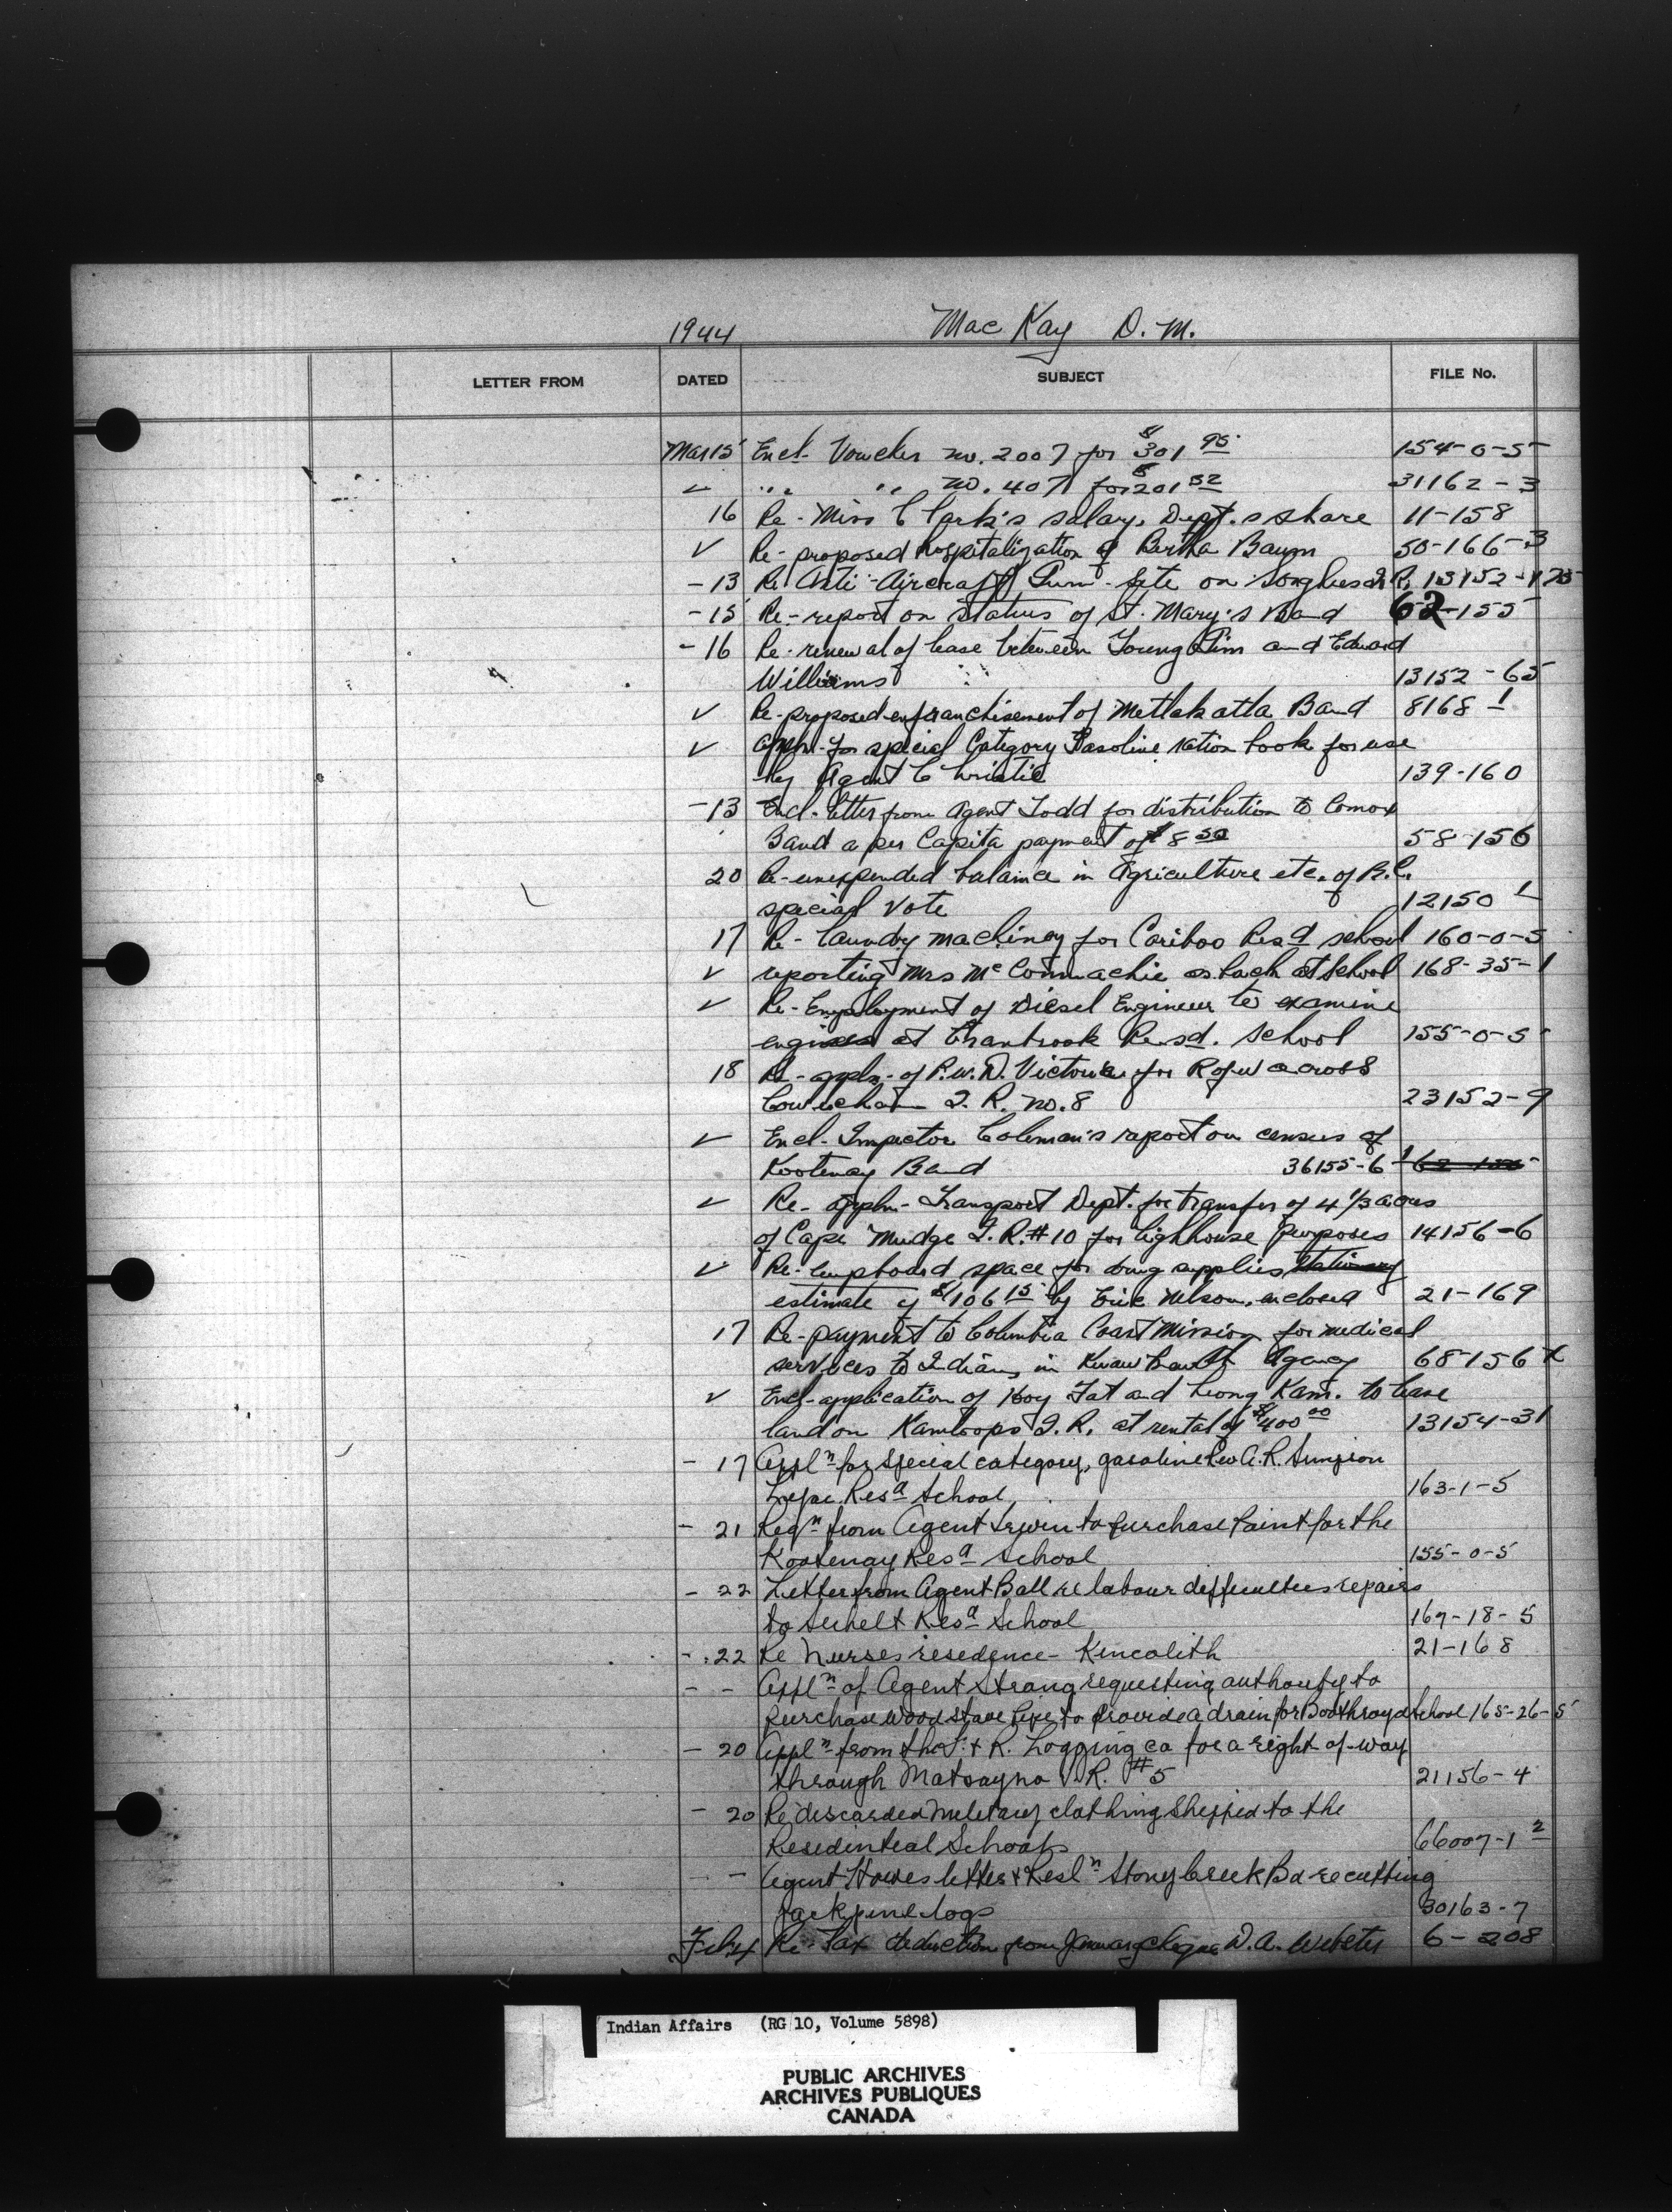 1944 Mac Kay D. M.
LETTER FROM DATED SUBJECT FILE No.
Mar 15 Encl- Voucher no. 2007 for $301 95 154-0-5
✓ " " no. 407 for $201 52 31162-3
16 Re- Miss Clark's salary, Dept.s share 11-158
✓ Re- proposed hospitalization of Bertha Baum 50-166-3
- 13 Re Anti-Aircraft Gun-Site on Songhees I.R. 13152-175
- 15 Re- report on status of St. Mary's Band 62-155
- 16 Re- renewal of lease between Young Jim and Edward
Williams 13152-65
✓ Re- proposed enfranchisement of Metlakatla Band 8168-1
✓ appln- for special Category Gasoline ration book for use
by Agent Christie 139-160
- 13 Encl- letter from Agent Todd for distribution to Comox
Band a per Capita payment of $8 50 58-156
20 Re- unexpended balance in Agriculture etc. of B.C.
special vote 12150-1
17 Re- laundry machinery for Cariboo Resd school 160-0-5
✓ reporting Mrs McConnachie as back at School 168-35-1
✓ Re- Employment of Diesel Engineer to examine
engines at Cranbrook Resd. School 155-0-5
18 Re- appln- of P.W.D. Victoria for R of w across
Cowichan I. R. no. 8 23152-9
✓ Encl- Inspector Coleman's report on census of
Kootenay Band 36155-6-1
✓ Re- appln- Transport Dept. for transfer of 4 1/3 acres
of Cape Mudge I. R. #10 for lighhouse purposes 14156-6
✓ Re- cupboard space for drug supplies stationery
estimate of $106 15 by Eric Nelson, enclosed 21-169
17 Re- payment to Columbia Coast Mission for medical
services to Indians in Kwawkewlth Agency 68-156
✓ Encl- application of Hoy Fat and Leong Kam. to lease
land on Kamloops I. R. at rental of $400 00 13154-31
- 17 Appln for special category, gasoline Rev A.R. Simpson
Lejac Resd School 163-1-5
- 21 Reqn from Agent Irwin to purchase Paint for the
Kootenay Resd School 155-0-5
- 22 Letter from Agent Ball re labour difficulties repairs
to Sechelt Resd School 167-18-5
- 22 Re Nurses residence- Kincolith 21-168
- - Appln of Agent Strang requesting authority to
purchase wood stave pipe to provide a drain for Boothroyd School 165-26-5
- 20 Appln from the & R. Logging co for a right of-way
through Matsayno I.R. #5 21156-4
- 20 Re discarded military clothing shipped to the
Residential Schools 66007-1 2
- - Agent Howes letter & Resln Stony Creek Bd re cutting
Jackpine logs 30163-7
Feb 4 Re- Tax deduction from January cheque D. A. Webster 6-208
Indian Affairs (RG 10, Volume 5898)
PUBLIC ARCHIVES
ARCHIVES PUBLIQUES
CANADA